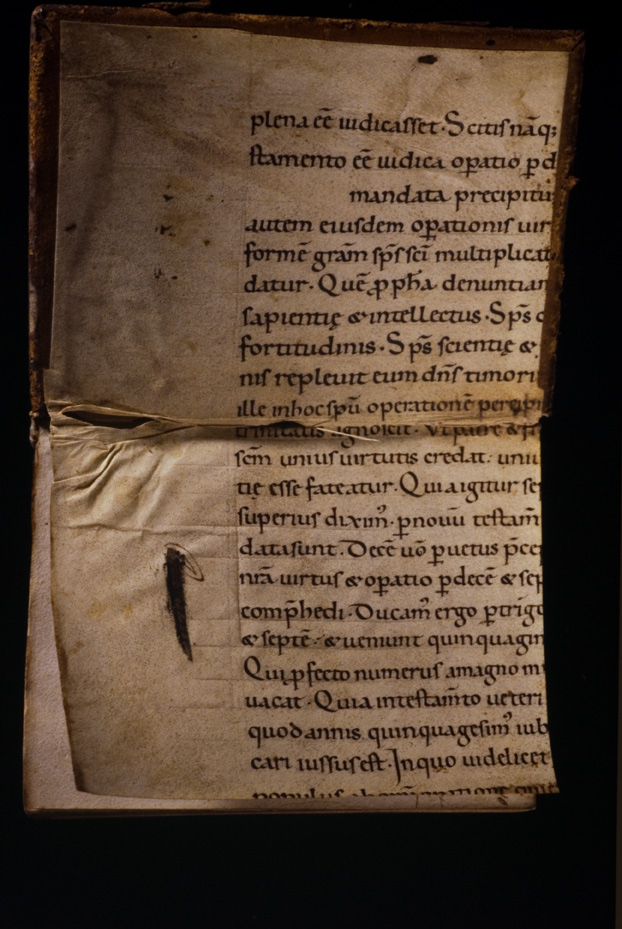 plena eē iudicasset · Scitis nāq;
stamento eē iudica oꝑatio ꝑ d
mandata precipitu
autem eiusdem oꝑationis uir
formē gram̄ sp̄s sc̄i multiplicat
datur · Quē ꝓ ph̄a denuntian
sapientię & intellectus · Sp̄s c
fortitudinis · Sp̄s scientię &
nis repleuit eum dn̄s timori
ille in hoc spū operationē percipi
trinitatis agnoscit · Vt patre &
sc̄m unius uirtutis credat · uni
tię esse fateatur · Quia igitur se
superius diximꝰ · ꝑ nouū testam̄
data sunt · Decē uō ꝑ uetus p̄ce
nr̄a uirtus & oꝑatio ꝑ decē & sep
comp̄hedi · Ducam̄ ergo ꝑ trigi
& septē · & ueniunt quinquagin
Qui ꝓfecto numerus a magno m
uacat · Quia in testam̄to ueteri
quod annis quinquagesimꝰ iub
cari iussus est · In quo uidelicet
populus